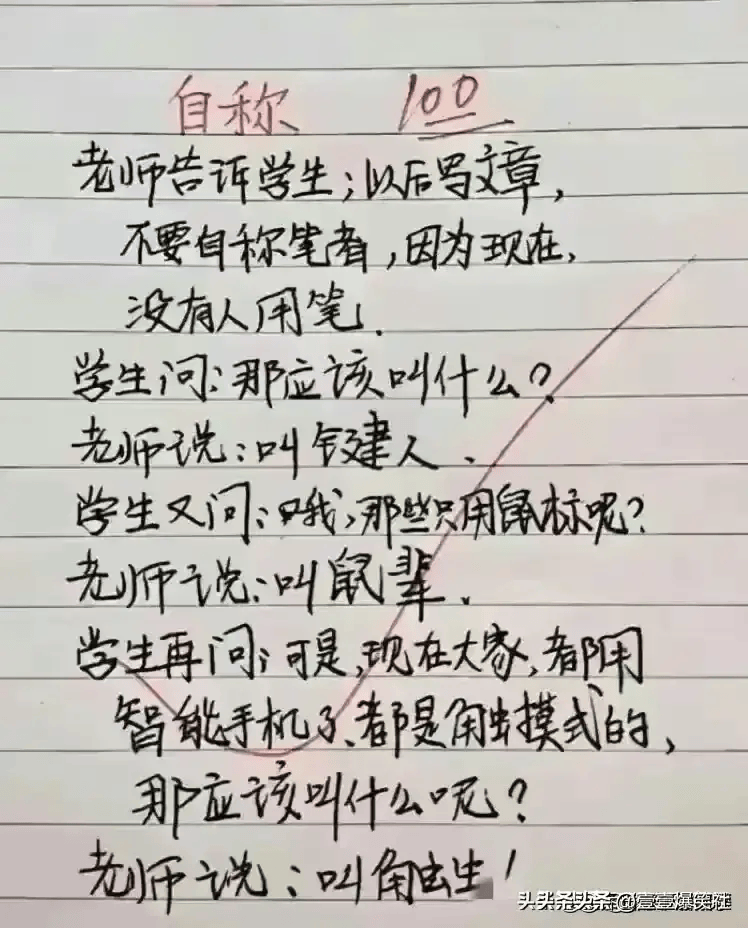 自称 100
老师告诉学生；以后写文章，
不要自称笔者，因为现在，
没有人用笔.
学生问：那应该叫什么？
老师说：叫键人.
学生又问：哦，那些只用鼠标呢？
老师说：叫鼠辈.
学生再问；可是，现在大家，都用
智能手机了、都是触摸式的，
那应该叫什么呢？
老师说：叫触生！